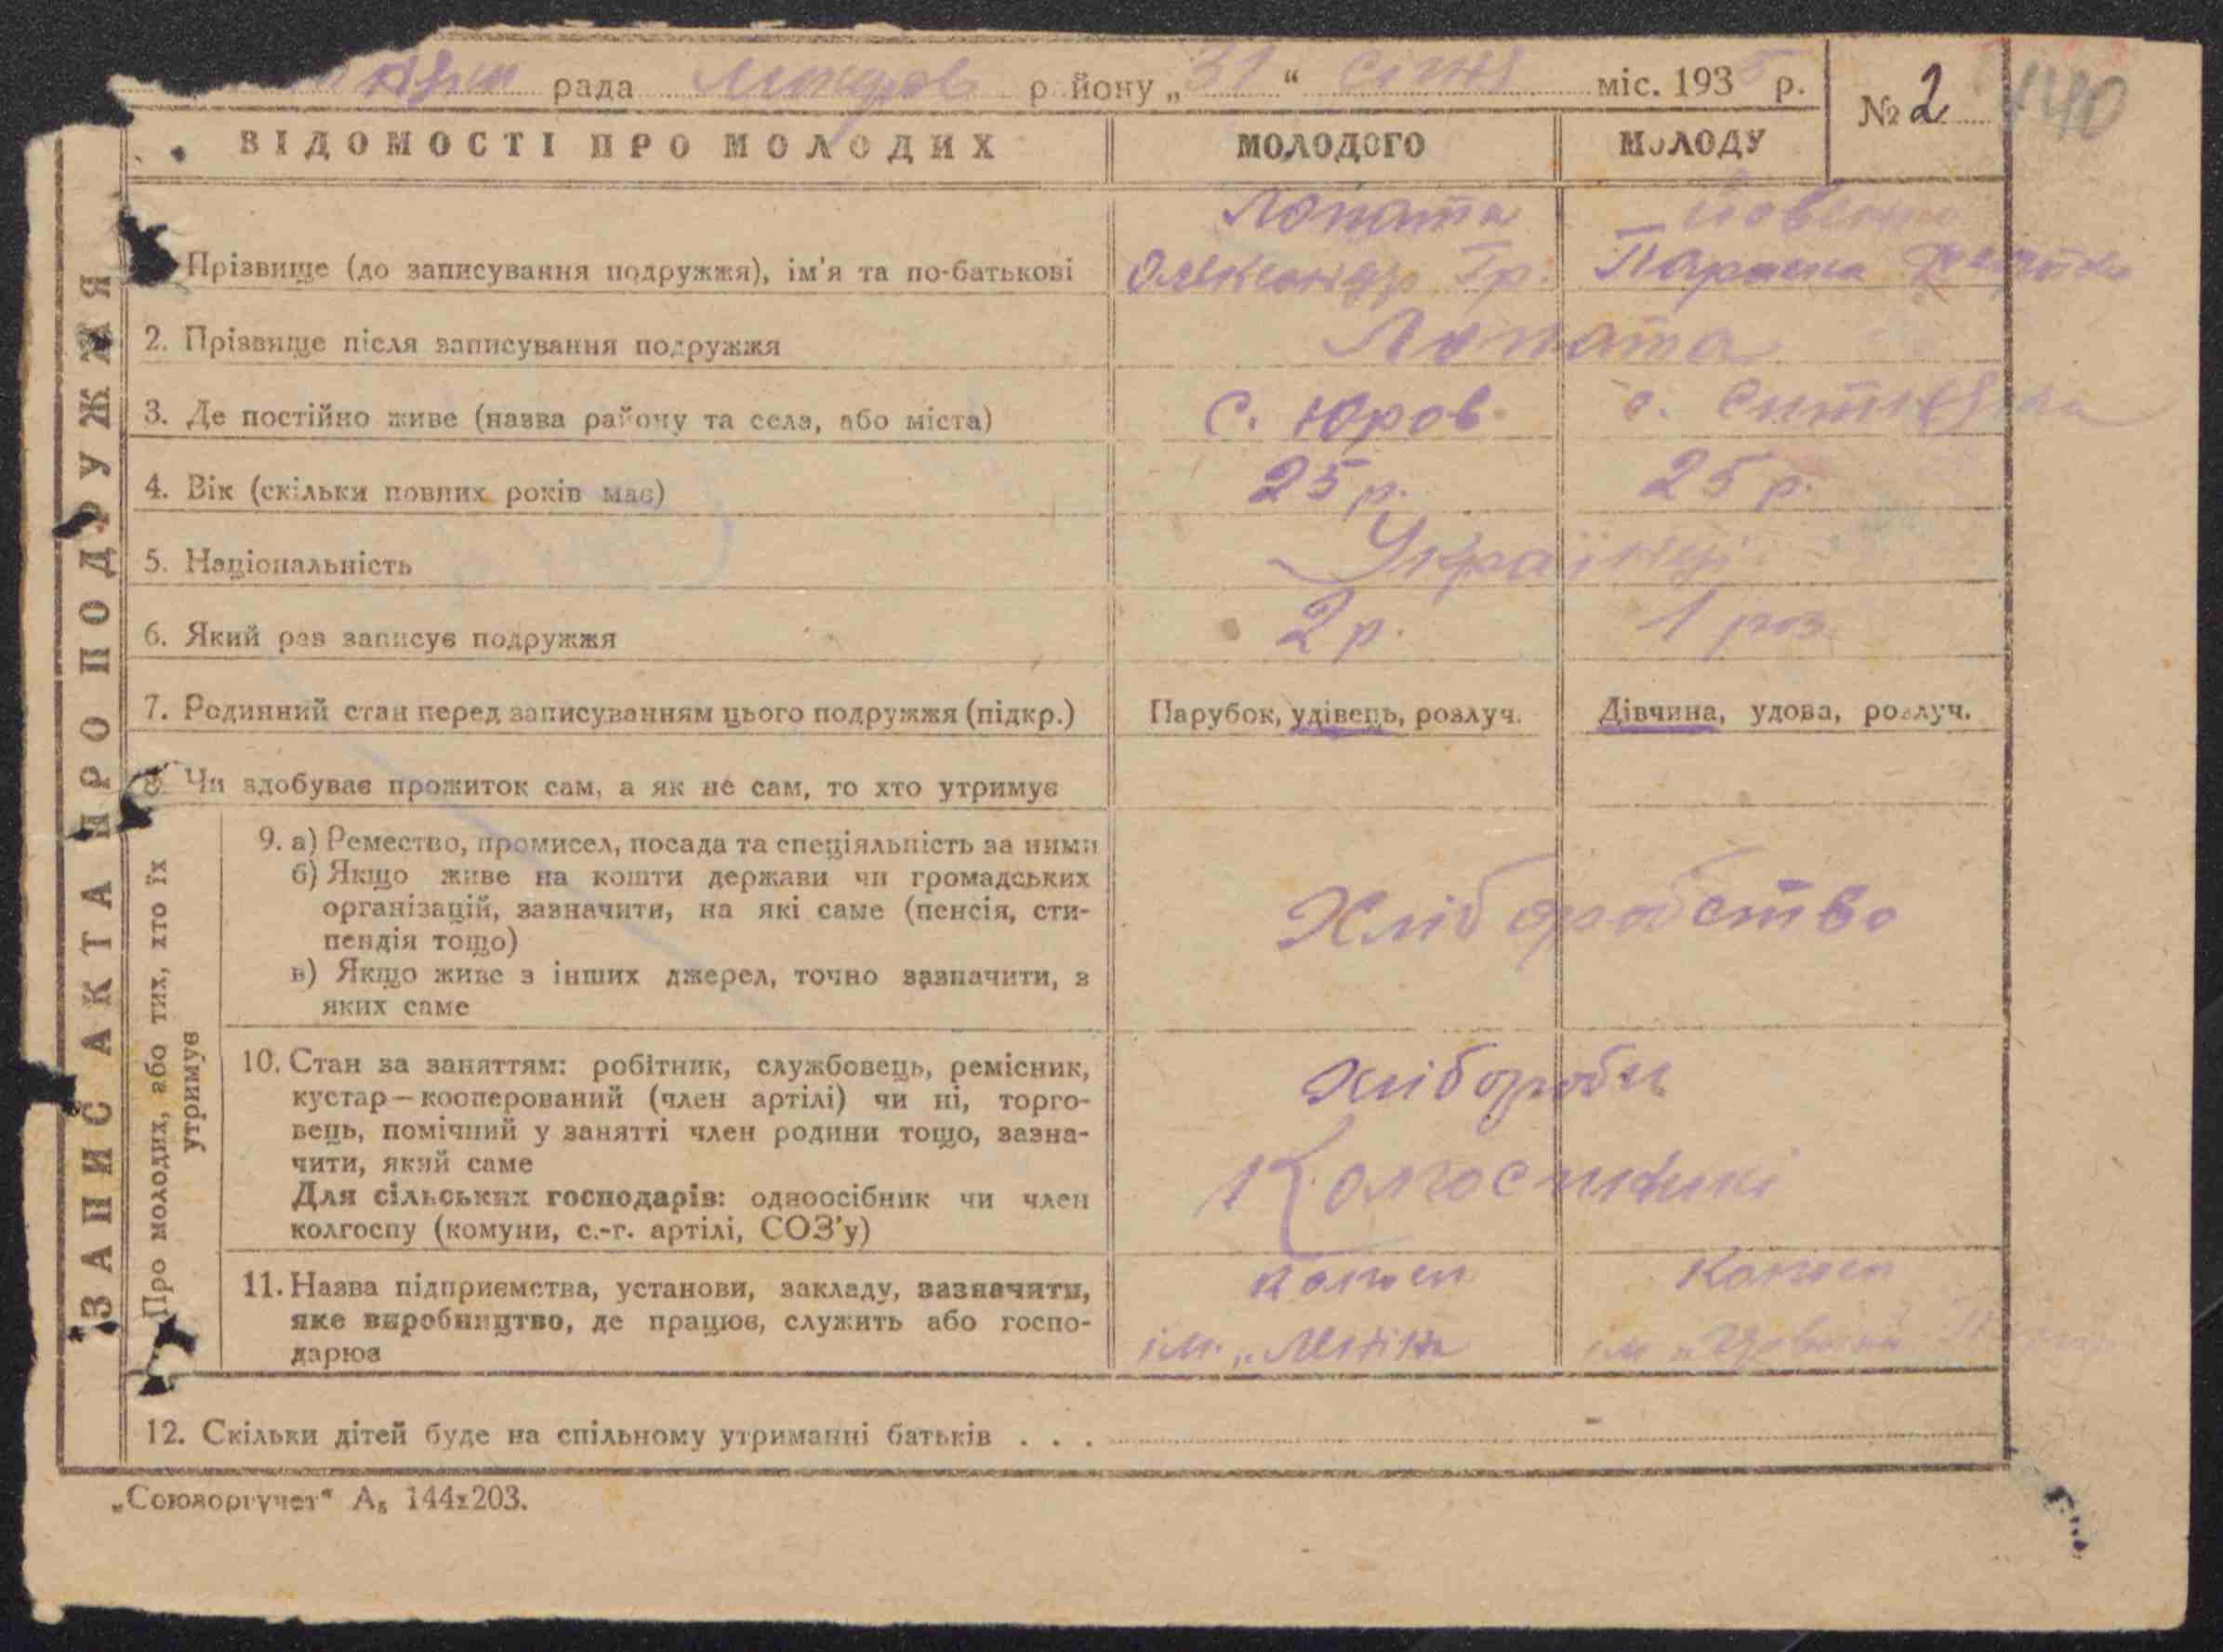 рада району „31“ Січня міс. 1935 р.
№ 2
140
ЗАПИС АКТА ПРО ПОДРУЖЖЯ
ВІДОМОСТІ ПРО МОЛОДИХ МОЛОДОГО МОЛОДУ
Лопата
Прізвище (до записування подружжя), ім'я та по-батькові Олександр Гр. Параска
2. Прізвище після записування подружжя Лопата
3. Де постійно живе (назва району та села, або міста) С. Юров с.
4. Вік (скільки повних років має) 25 р. 25 р.
5. Національність Українці
6. Який раз записує подружжя 2 р. 1 раз
7. Родинний стан перед записуванням цього подружжя (підкр.) Парубок, удівець, розлуч. Дівчина, удова, розлуч.
8. Чи здобуває прожиток сам, а як не сам, то хто утримує
Про молодих, або тих, хто їх
утримує
9. а) Ремество, промисел, посада та спеціяльність за ними
б) Якщо живе на кошти держави чи громадських
організацій, зазначити, на які саме (пенсія, сти-
пендія тощо)
в) Якщо живе з інших джерел, точно зазначити, з
яких саме
Хліборобство
10. Стан за заняттям: робітник, службовець, ремісник,
кустар—кооперований (член артілі) чи ні, торго-
вець, помічний у занятті член родини тощо, зазна-
чити, який саме
Для сільських господарів: одноосібник чи член
колгоспу (комуни, с.-г. артілі, СОЗ'у)
Хлібороби
Колгоспники
11. Назва підприємства, установи, закладу, зазначити,
яке виробництво, де працює, служить або госпо-
дарює
ім. „Леніна
12. Скільки дітей буде на спільному утриманні батьків . . . -
„Союзоргучет“ А₅ 144х203.